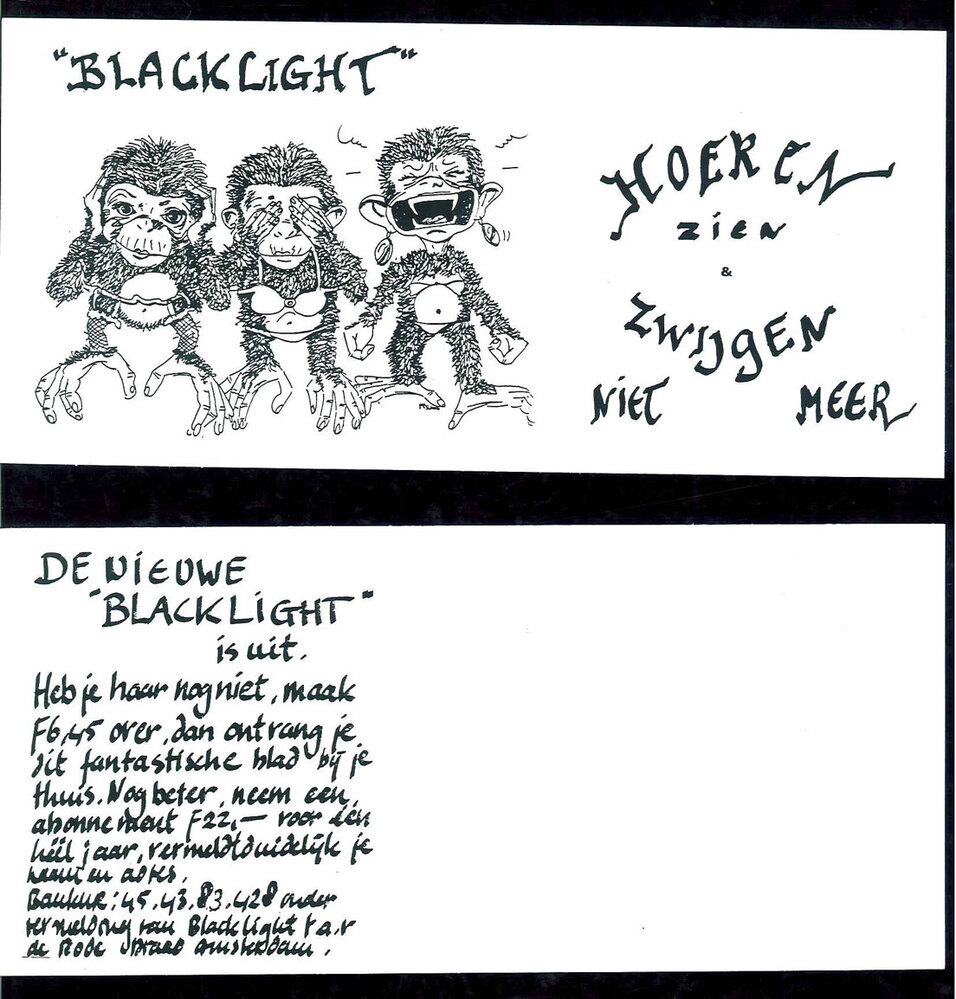 "BLACKLIGHT"
HOEREN
zien
&
ZWIJGEN
NIET MEER
DE NIEUWE
"BLACKLIGHT"
is uit.
Heb je haar nog niet, maak
F6,45 over, dan ontvang je
dit fantastische blad bij je
thuis. Nog beter, neem een
abonnement F22,- voor één
héél jaar, vermeld duidelijk je
naam en adres.
Banknr: 45.43.83.428 onder
vermelding van Blacklight t.a.v
de Rode Draad Amsterdam.